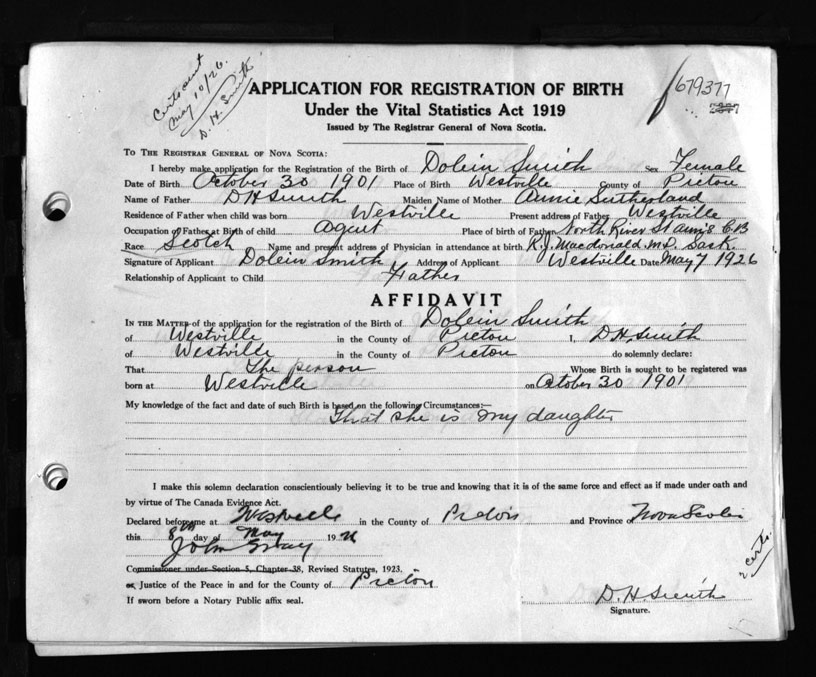 Certs sent
May 10/26.
D. H. Smith
679377
APPLICATION FOR REGISTRATION OF BIRTH
Under the Vital Statistics Act 1919
Issued by The Registrar General of Nova Scotia.
TO THE REGISTRAR GENERAL OF NOVA SCOTIA:
I hereby make application for the Registration of the Birth of Dolein Smith Sex Female
Date of Birth October 30 1901 Place of Birth Westville County of Pictou
Name of Father D H Smith Maiden Name of Mother Annie Sutherland
Residence of Father when child was born Westville Present address of Father Westville
Occupation of Father at Birth of child agent Place of birth of Father North River St Ann's C.B
Race Scotch Name and present address of Physician in attendance at birth R. J. Macdonald M.D. Sask.
Signature of Applicant Dolein Smith Address of Applicant Westville Date May 7 1926
Relationship of Applicant to Child Father
AFFIDAVIT
IN THE MATTER of the application for the registration of the Birth of Dolein Smith
of Westville in the County of Pictou I, D. H. Smith
of Westville in the County of Pictou do solemnly declare:
That The person Whose Birth is sought to be registered was
born at Westville on October 30 1901
My knowledge of the fact and date of such Birth is based on the following Circumstances:—
That she is my daughter
I make this solemn declaration conscientiously believing it to be true and knowing that it is of the same force and effect as if made under oath and
by virtue of The Canada Evidence Act.
Declared before me at Westville in the County of Pictou and Province of Nova Scotia
this 8th day of May 1926
John Gray
Commissioner under Section 5, Chapter 38, Revised Statutes, 1923.
or Justice of the Peace in and for the County of Pictou
If sworn before a Notary Public affix seal.
2 certs.
D. H. Smith
Signature.